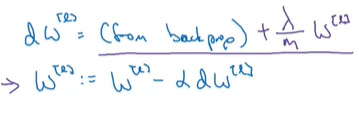 dW^[l] = (from backprop) + λ/m W^[l]
→ W^[l] := W^[l] - α dW^[l]